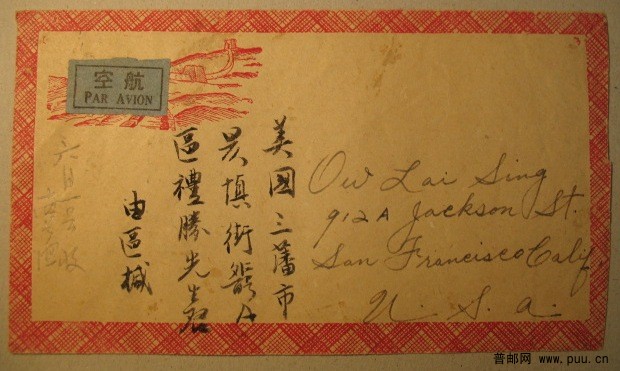 航空
PAR AVION
美國三藩市
昃慎街 A
區禮勝先生
由區械
Ow Lai Sing
912A Jackson St.
San Francisco Calif
U. S. A.
普邮网 www.puu.cn